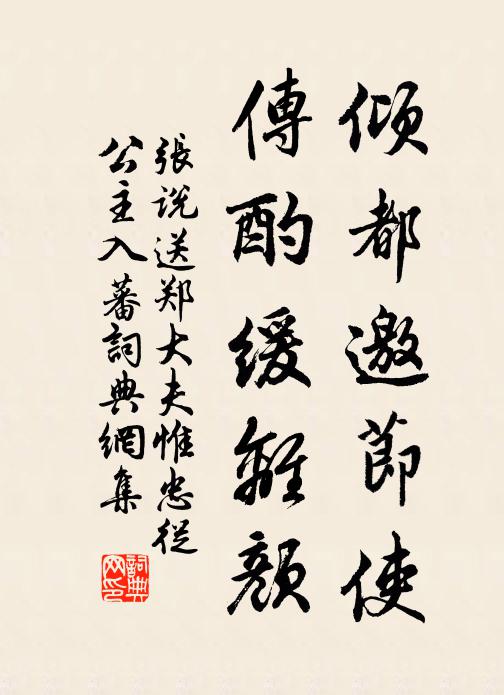 傾都邀節使
傳酌緩離顏
張説送郑大夫惟忠從
公主入蕃詞典網集
詞典
网印